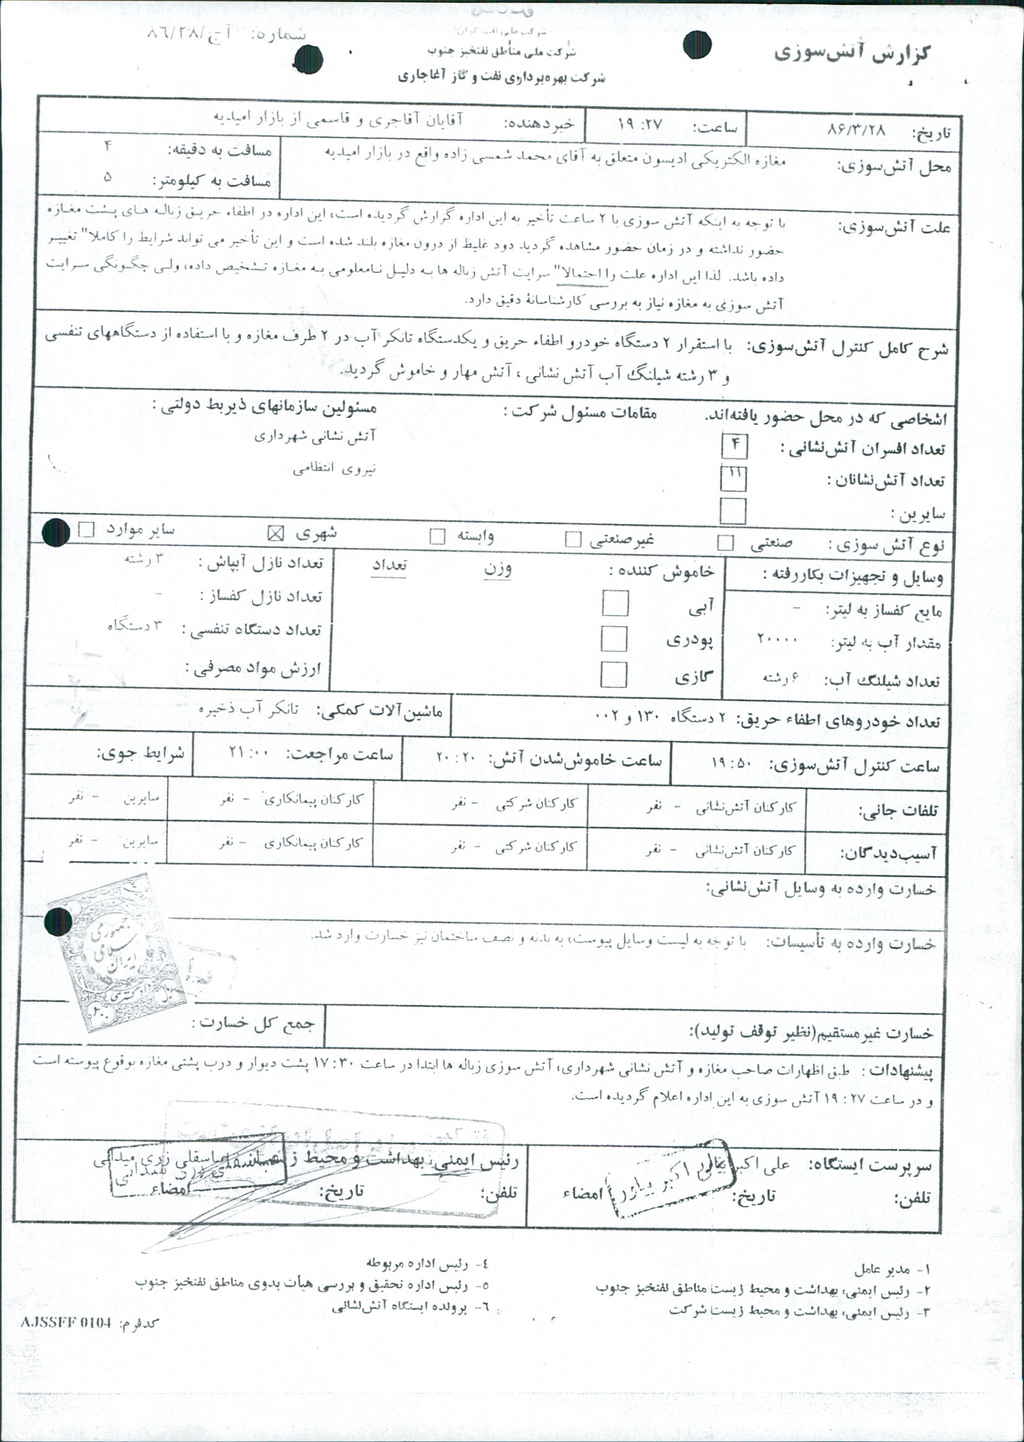 شماره: آج/۸۶/۲۸
شرکت ملی مناطق نفتخیز جنوب
شرکت بهره‌برداری نفت و گاز آغاجاری
گزارش آتش‌سوزی
تاریخ: ۸۶/۳/۲۸ ساعت: ۱۹:۲۷ خبردهنده: آقایان آقاجری و قاسمی از بازار امیدیه
محل آتش‌سوزی: مغازه الکتریکی ادیسون متعلق به آقای محمد شمسی زاده واقع در بازار امیدیه
مسافت به دقیقه: ۴
مسافت به کیلومتر: ۵
علت آتش‌سوزی: با توجه به اینکه آتش سوزی با ۲ ساعت تأخیر به این اداره گزارش گردیده است، این اداره در اطفاء حریق زباله های پشت مغازه
حضور نداشته و در زمان حضور مشاهده گردید دود غلیظ از درون مغازه بلند شده است و این تأخیر می تواند شرایط را کاملا" تغییر
داده باشد. لذا این اداره علت را احتمالا" سرایت آتش زباله ها به دلیل نامعلومی به مغازه تشخیص داده، ولی چگونگی سرایت
آتش سوزی به مغازه نیاز به بررسی کارشناسانهٔ دقیق دارد.
شرح کامل کنترل آتش‌سوزی: با استقرار ۲ دستگاه خودرو اطفاء حریق و یکدستگاه تانکر آب در ۲ طرف مغازه و با استفاده از دستگاههای تنفسی
و ۳ رشته شیلنگ آب آتش نشانی ، آتش مهار و خاموش گردید.
اشخاصی که در محل حضور یافته‌اند. مقامات مسئول شرکت : مسئولین سازمانهای ذیربط دولتی :
تعداد افسران آتش‌نشانی : ۴ آتش نشانی شهرداری
تعداد آتش‌نشانان : ۱۱ نیروی انتظامی
سایرین :
نوع آتش سوزی : صنعتی غیرصنعتی وابسته شهری ☒ سایر موارد
وسایل و تجهیزات بکاررفته : خاموش کننده : وزن تعداد تعداد نازل آبپاش : ۳ رشته
مایع کفساز به لیتر: - آبی تعداد نازل کفساز : -
مقدار آب به لیتر: ۲۰۰۰۰ پودری تعداد دستگاه تنفسی : ۳ دستگاه
تعداد شیلنگ آب: ۶ رشته گازی ارزش مواد مصرفی :
تعداد خودروهای اطفاء حریق: ۲ دستگاه ۱۳۰ و ۰۰۲ ماشین‌آلات کمکی: تانکر آب ذخیره
ساعت کنترل آتش‌سوزی: ۱۹:۵۰ ساعت خاموش‌شدن آتش: ۲۰:۲۰ ساعت مراجعت: ۲۱:۰۰ شرایط جوی:
تلفات جانی: کارکنان آتش‌نشانی - نفر کارکنان شرکتی - نفر کارکنان پیمانکاری - نفر سایرین - نفر
آسیب‌دیدگان: کارکنان آتش‌نشانی - نفر کارکنان شرکتی - نفر کارکنان پیمانکاری - نفر سایرین - نفر
خسارت وارده به وسایل آتش‌نشانی:
خسارت وارده به تأسیسات: با توجه به لیست وسایل پیوست، به بدنه و سقف ساختمان نیز خسارت وارد شد.
جمهوری
اسلامی
ایران
خسارت غیرمستقیم(نظیر توقف تولید): جمع کل خسارت :
پیشنهادات : طبق اظهارات صاحب مغازه و آتش نشانی شهرداری، آتش سوزی زباله ها ابتدا در ساعت ۱۷:۳۰ پشت دیوار و درب پشتی مغازه بوقوع پیوسته است
و در ساعت ۱۹:۲۷ آتش سوزی به این اداره اعلام گردیده است.
سرپرست ایستگاه: علی اکبر رئیس ایمنی، بهداشت و محیط زیست: عباسقلی زری میدانی
تلفن: تاریخ: امضاء تلفن: تاریخ: امضاء
۱- مدیر عامل
۲- رئیس ایمنی، بهداشت و محیط زیست مناطق نفتخیز جنوب
۳- رئیس ایمنی، بهداشت و محیط زیست شرکت
۴- رئیس اداره مربوطه
۵- رئیس اداره تحقیق و بررسی هیأت بدوی مناطق نفتخیز جنوب
۶- پرونده ایستگاه آتش‌نشانی
کدفرم: AJSSFF 0104